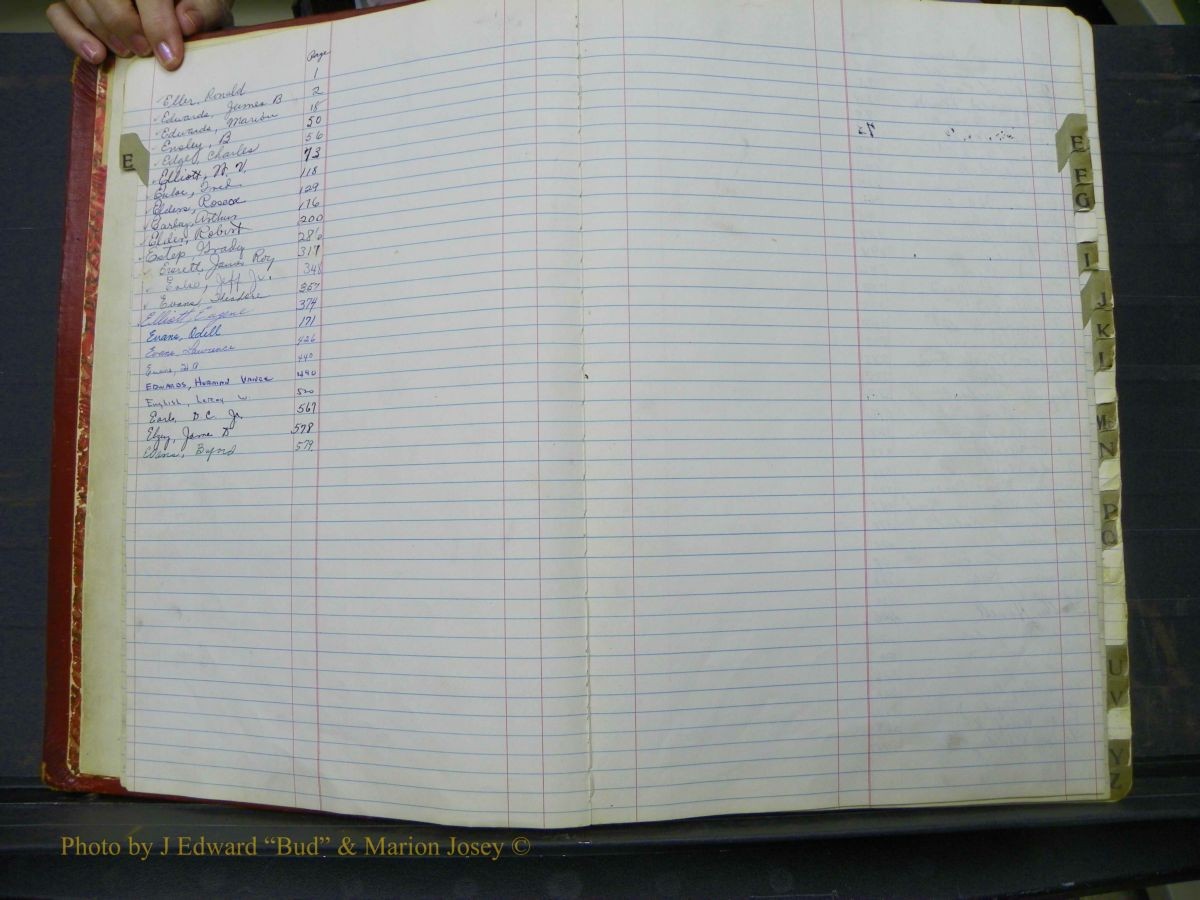 Page
Eller, Ronald 1
Edwards, James B 2
Edwards, Marion 18
Ensley, B 50
Edge, Charles 56
Elliott, W. V. 73
Fred 118
Elders, Roscoe 129
Arthur 176
Elder, Robert 200
Estep, Grady 286
Everett, James Roy 317
Jeff Jr. 348
Evans, Theodore 357
Elliott, Eugene 374
Evans, Odell 171
Evans, Lawrence 426
Evans, 440
EDWARDS, HERMAN VANCE 490
English, Leroy W 520
Earls, D. C. Jr. 567
Elzey, James D 578
Evans, Byrd 579
E
E
F
G
I
J
K
L
M
N
P
Q
U
V
Y
Z
Photo by J Edward “Bud” & Marion Josey ©